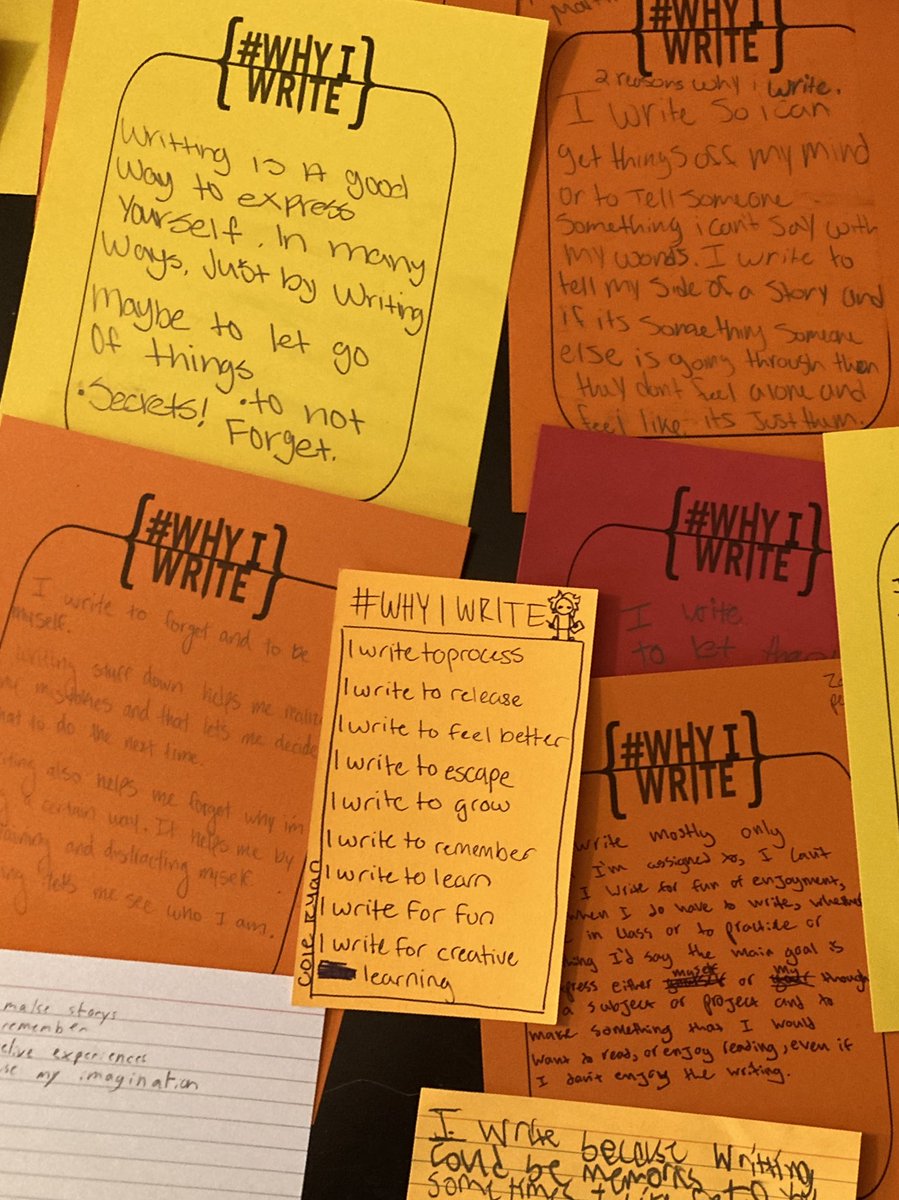 #WHY I
WRITE
Writting is A good
way to express
yourself. In many
ways, Just by writing
Maybe to let go
Of things
•Secrets! •to not
Forget.
#WHY I
WRITE
2 reasons why i write.
I write so i can
get things off my mind
or to Tell someone
something i can't say with
my words. I write to
tell my side of a story and
if its something someone
else is going through then
they dont feel alone and
feel like its Just them.
#WHY I
WRITE
I write to forget and to be
myself.
writing stuff down helps me realize
mistakes and that lets me decide
what to do the next time.
also helps me forget why im
a certain way. It helps me by
and distracting myself
lets me see who I am.
#WHY I WRITE
I write to process
I write to release
I write to feel better
I write to escape
I write to grow
I write to remember
I write to learn
I write for fun
I write for creative
learning
Cole Ryan
#WHY I
WRITE
I write
to let
#WHY I
WRITE
write mostly only
I'm assigned to, I can't
I write for fun of enjoyment,
when I do have to write, whether
in class or to practice or
I'd say the main goal is
either myself or my through
a subject or project and to
make something that I would
want to read, or enjoy reading, even if
I don't enjoy the writing.
make storys
remember
experiences
my imagination
I write because writting
could be
sometimes